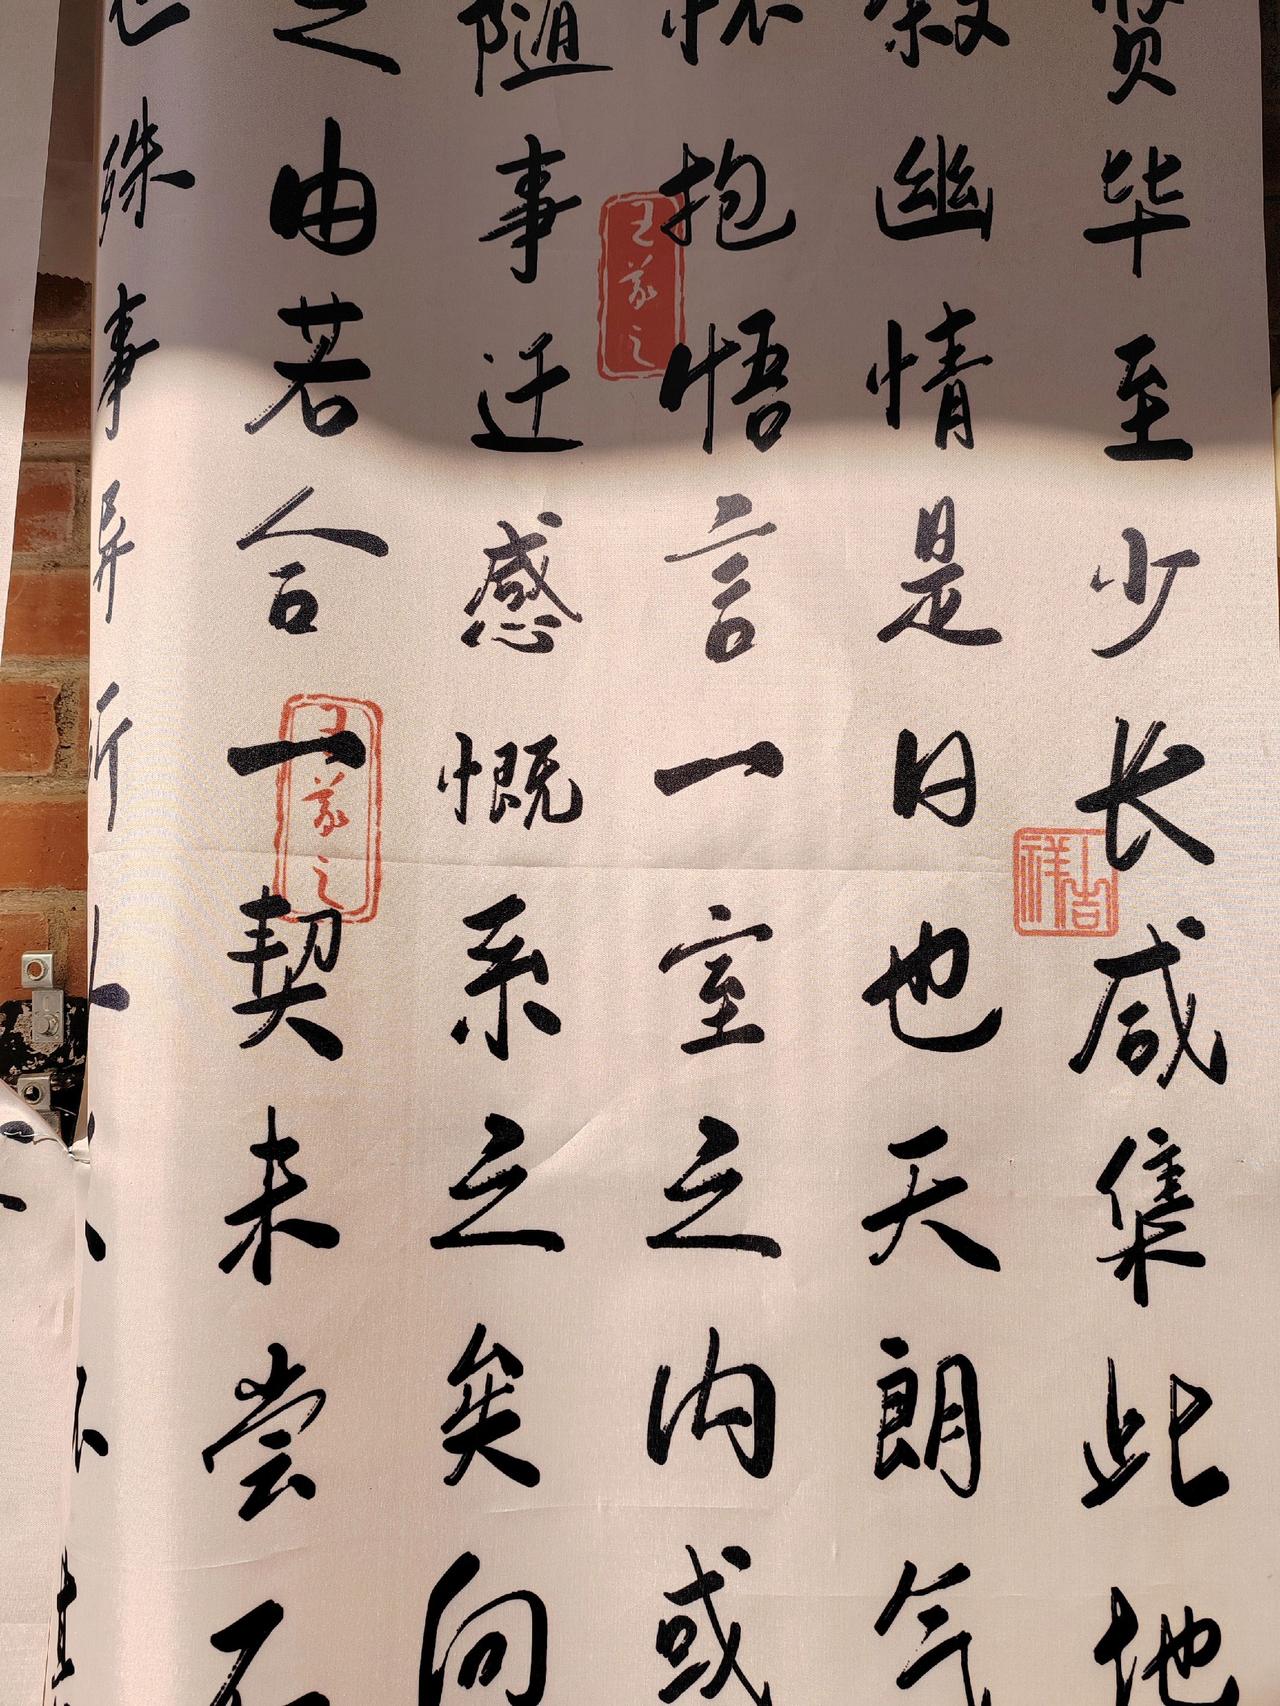 贤毕至少长咸集此地
叙幽情是日也天朗气
怀抱悟言一室之内或
随事迁感慨系之矣向
之由若合一契未尝不
殊事异所以
王羲之
王羲之
吉祥